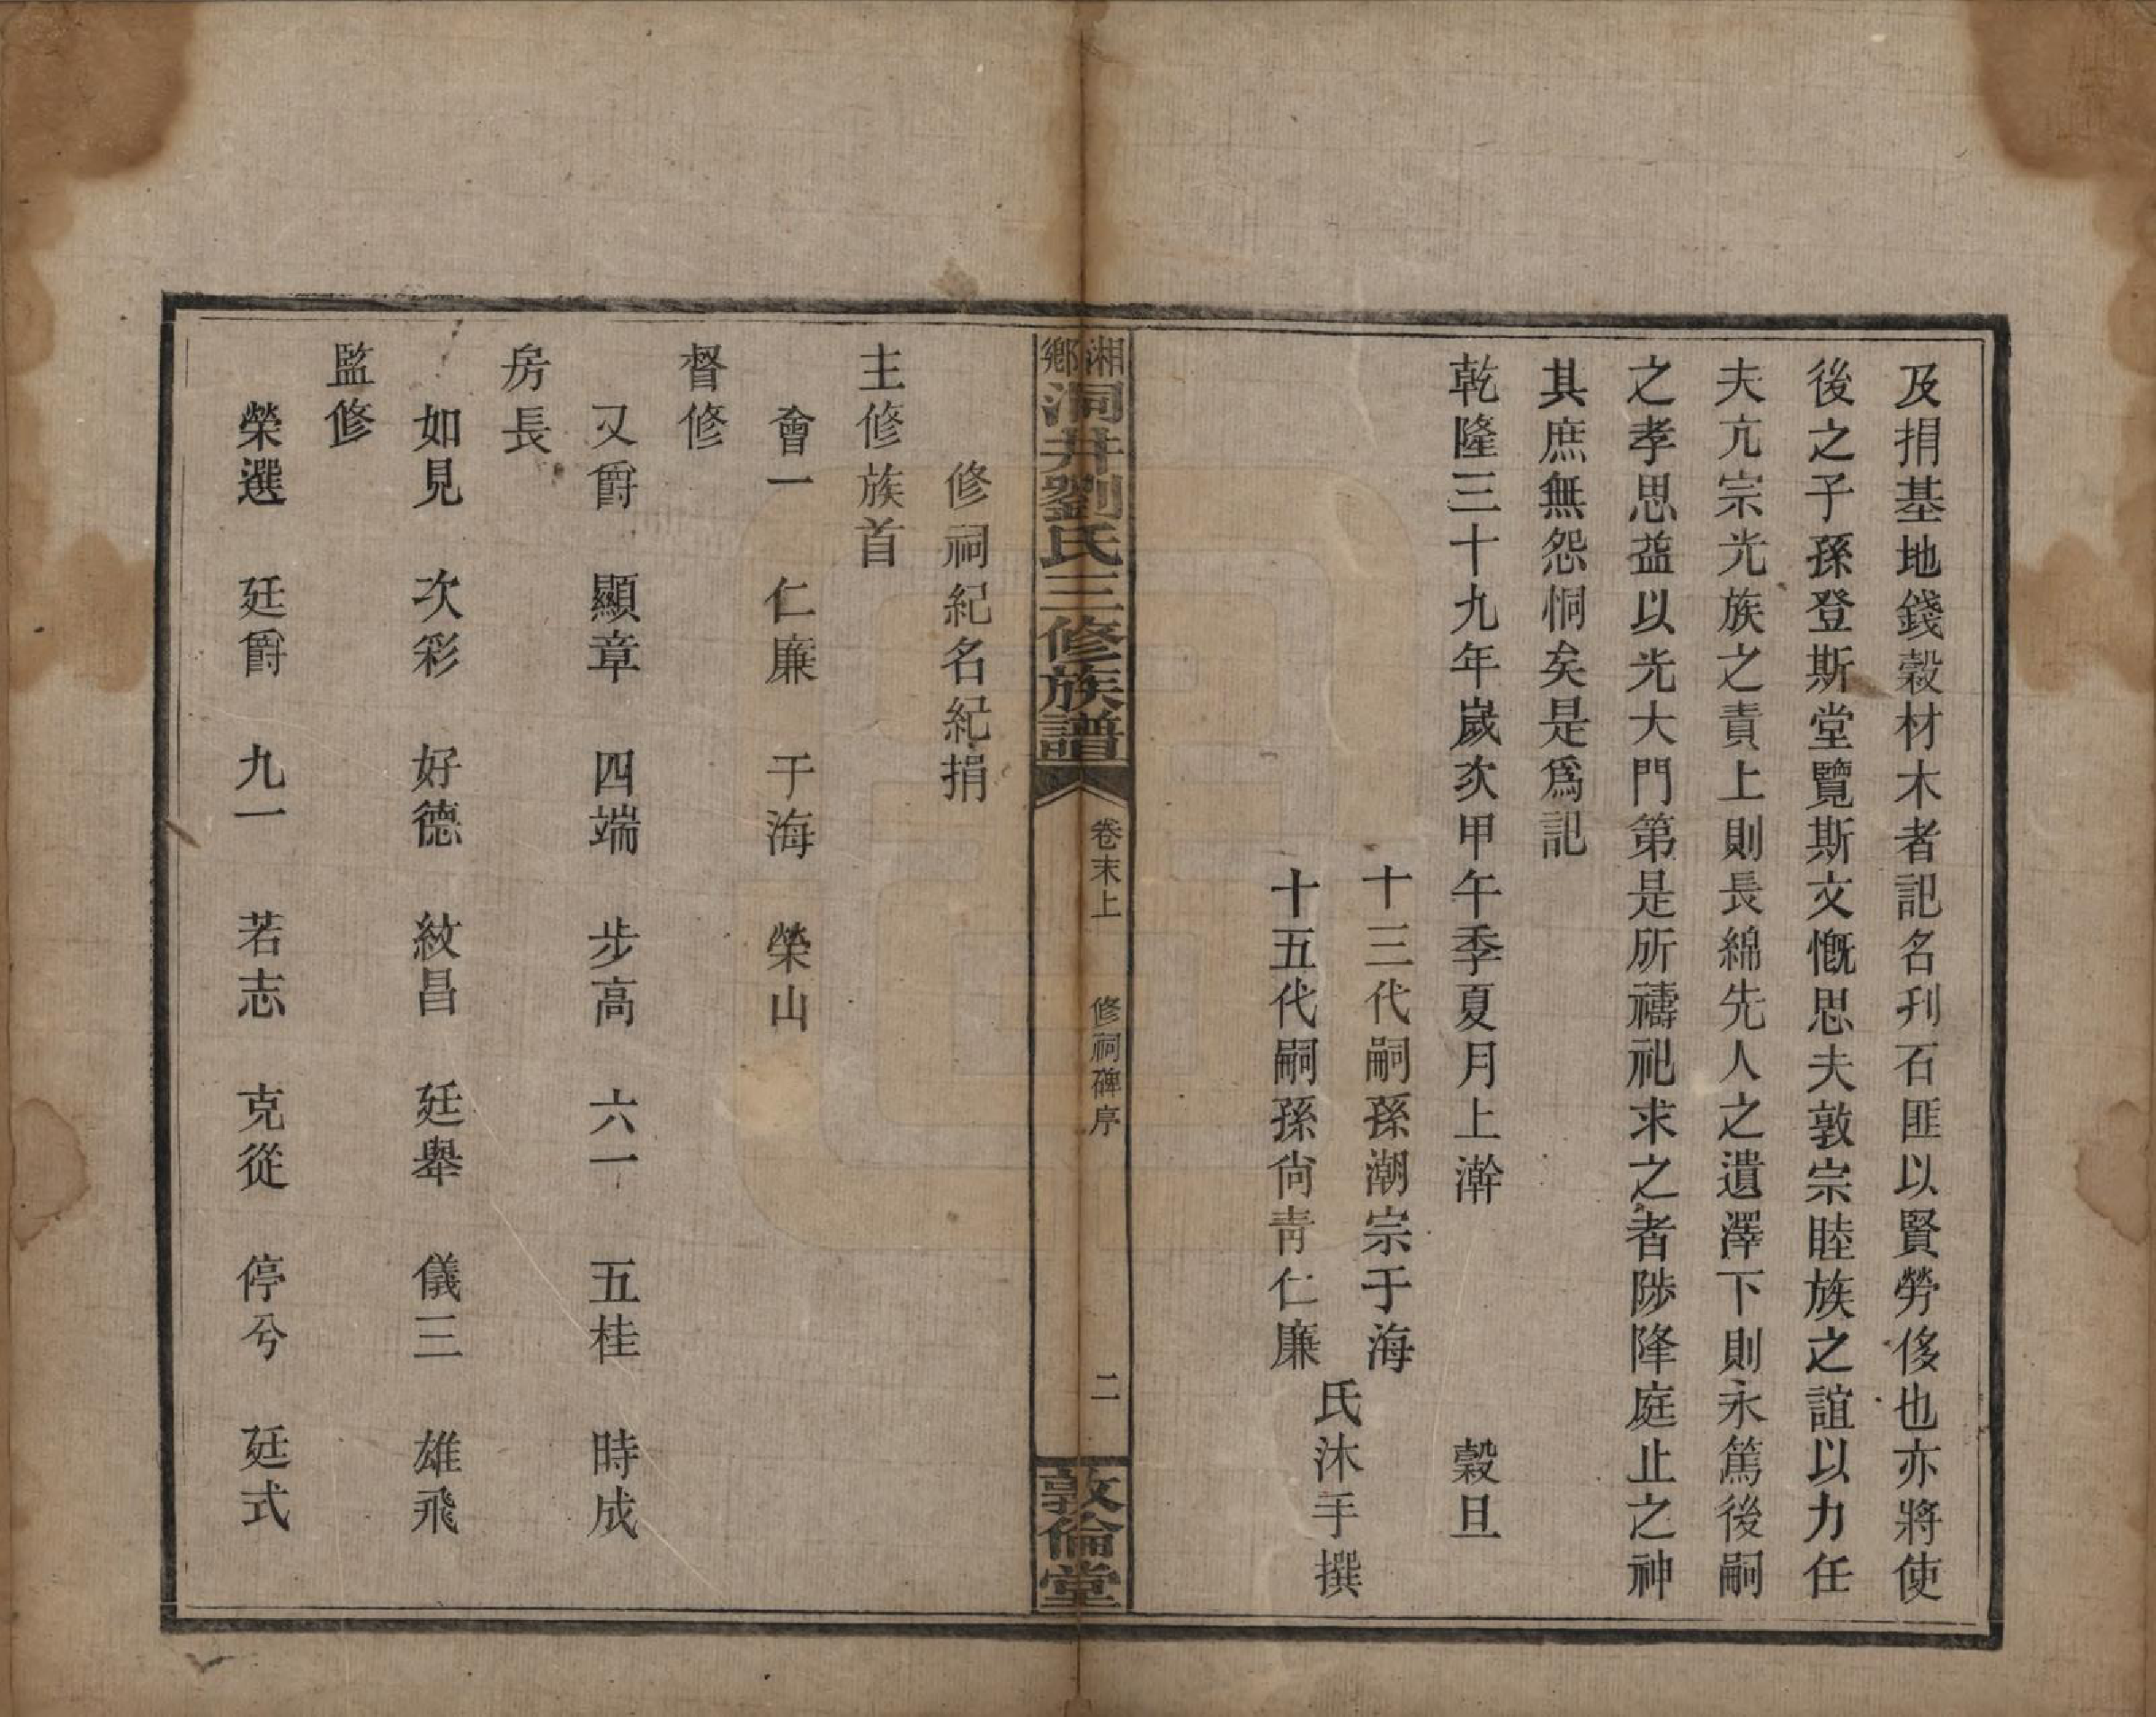 及捐基地錢穀材木者記名刋石匪以賢勞侈也亦將使
後之子孫登斯堂覽斯文慨思夫敦宗睦族之誼以力任
夫亢宗光族之責上則長綿先人之遺澤下則永篤後嗣
之孝思葢以光大門第是所禱祀求之者陟降庭止之神
其庶無怨恫矣是爲記
乾隆三十九年歲次甲午季夏月上澣　穀旦
十三代嗣孫潮宗于海
十五代嗣孫尙靑仁廉
氏沐手撰
湘鄉洞井劉氏三修族譜　卷末上　修祠碑序　二　敦倫堂
修祠紀名紀捐
主修族首
會一　仁廉　于海　榮山
督修
又爵　顯章　四端　步高　六一　五桂　時成
房長
如見　次彩　好德　紋昌　廷舉　儀三　雄飛
監修
榮選　廷爵　九一　若志　克從　停兮　廷式